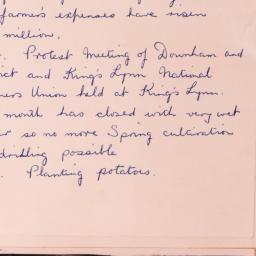 farmer's expenses have risen
million.
. Protest Meeting of Downham and
ict and King's Lynn National
mers Union held at King's Lynn.
month has closed with very wet
so no more Spring cultivation
drilling possible
. Planting potatoes.